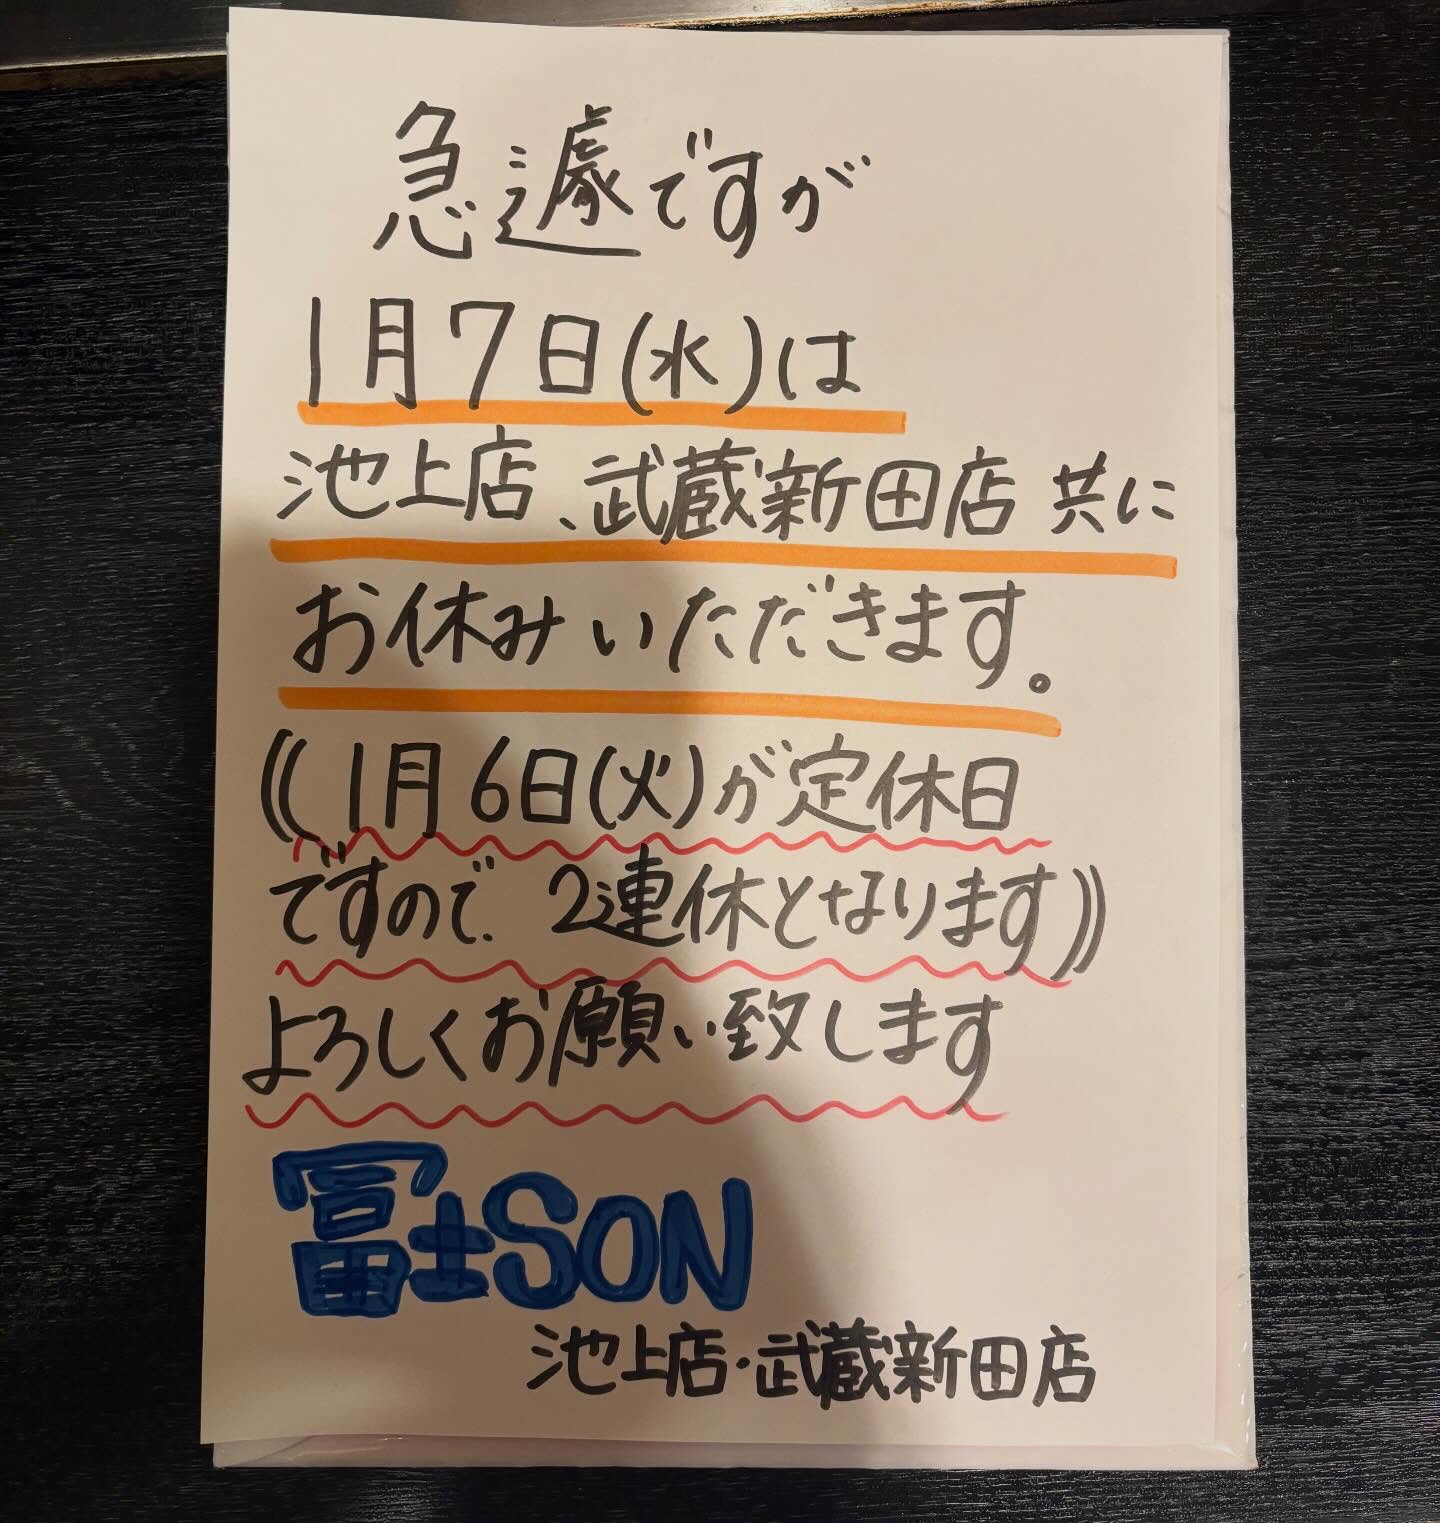 急遽ですが
1月7日(水)は
池上店、武蔵新田店 共に
お休みいただきます。
((1月6日(火)が定休日
ですので、2連休となります))
よろしくお願い致します
冨士SON
池上店・武蔵新田店